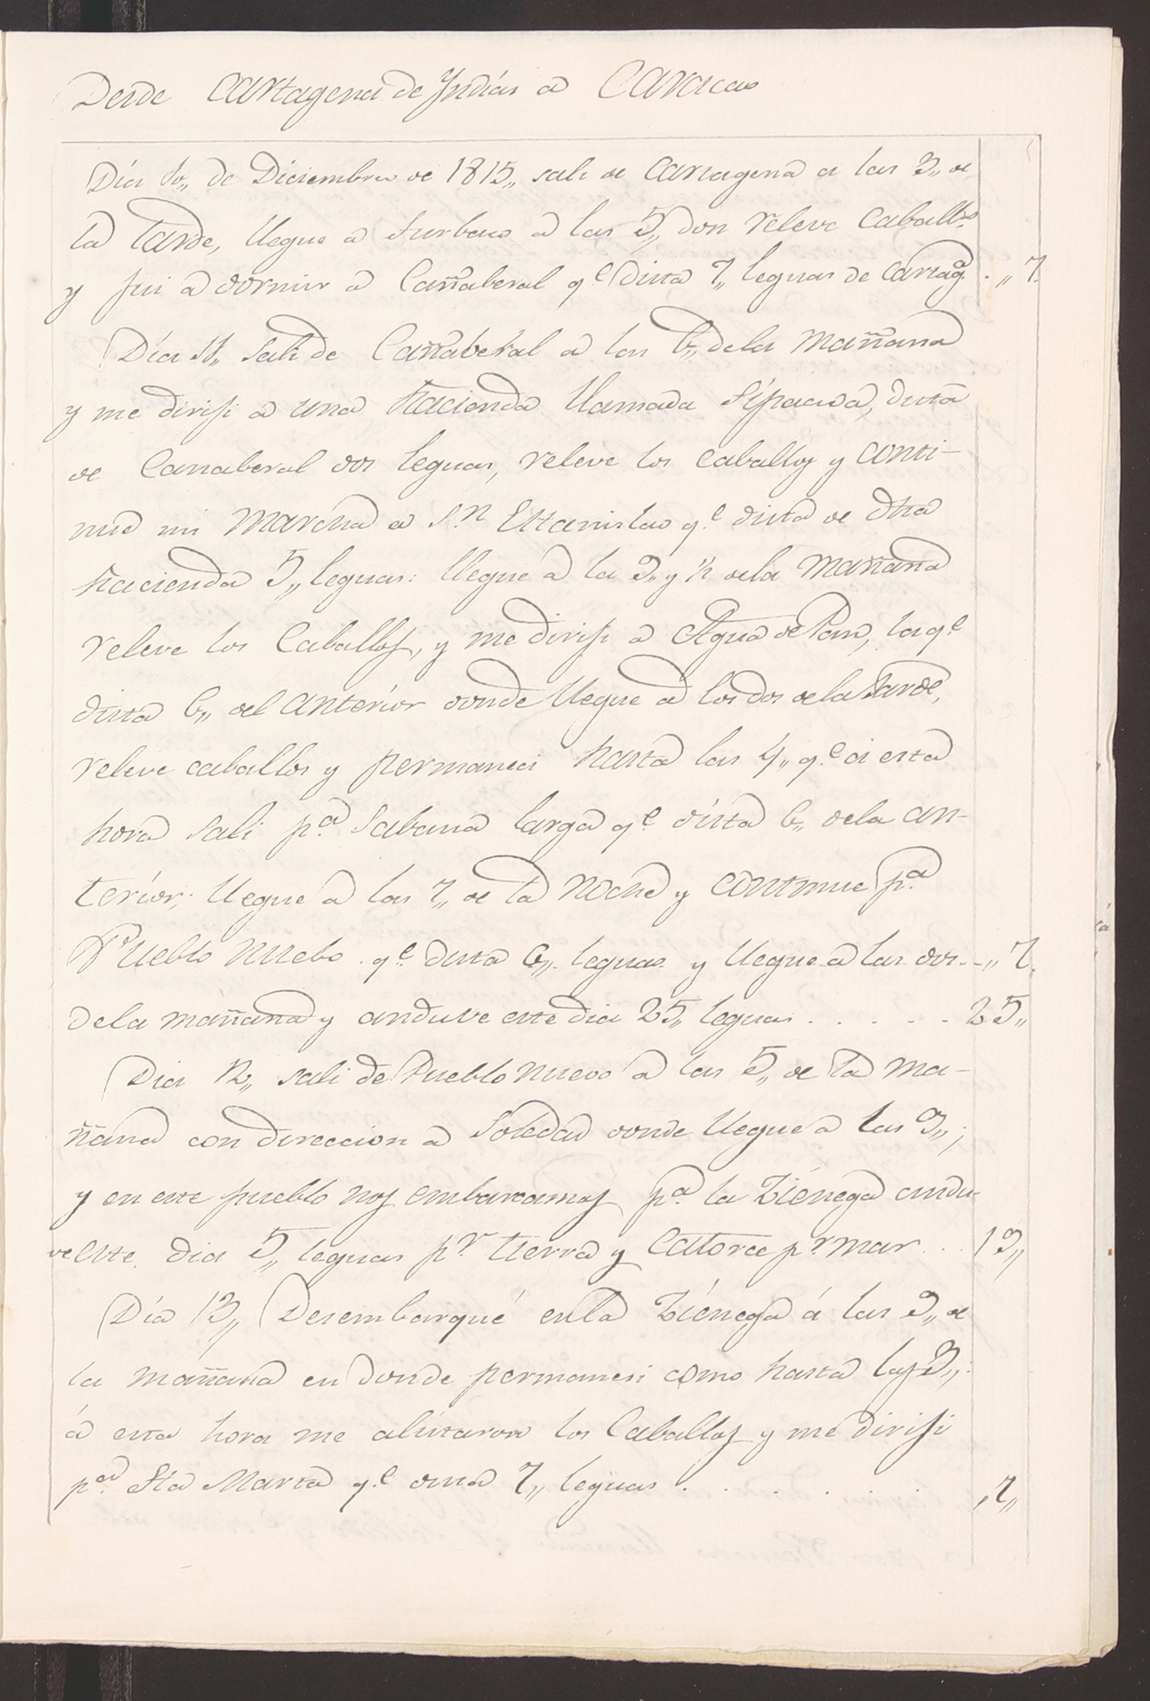 Desde Cartagena de Yndias a Caracas
Dia 10,, de Diciembre de 1815,, sali de Cartagena a las 3,, de
la tarde, llegue a Turbaco a las 5,, don releve caballos
y fui a dormir a Cañaberal qe dista 7,, leguas de Cartaga . ,, 7.
Dia 11,, sali de Cañaberal a las 6,, de la mañana
y me dirisi a una hacienda llamada Sipacoá, dista
de Canaberal dos leguas, releve los caballos y conti-
nue mi marcha a Sn Estanislao qe dista de dha
hacienda 5,, leguas: llegue a la 9,, y ½ de la mañana
releve los Caballos, y me dirisi a Agua de Pan, la qe
dista 6,, del anterior donde llegue a los dos de la tarde,
releve caballos y permaneci hasta las 4,, qe a esta
hora sali pa Sabana larga qe dista 6,, de la an-
terior; llegue a las 7,, de la noche y continue pa
Pueblo Nuebo qe dista 6,, leguas y llegue a las dos - ,, 7.
de la mañana y anduve este dia 25,, leguas . . . . . 25,,
Dia 12,, sali de Pueblo nuevo a las 5,, de la ma-
ñana con direccion a Soledad donde llegue a las 9,,;
y en este pueblo nos embarcamos pa la Ziénega andu-
ve este dia 5,, leguas pr tierra y Catorce pr mar . . 19,,
Dia 13,, Desembarqué en la Ziénega á las 9,, de
la mañana en donde permaneci como hasta las 3,,:
á esta hora me alistaron los Caballos y me dirisi
pa Sta Marta qe dista 7,, leguas . . . . . . ,7,,